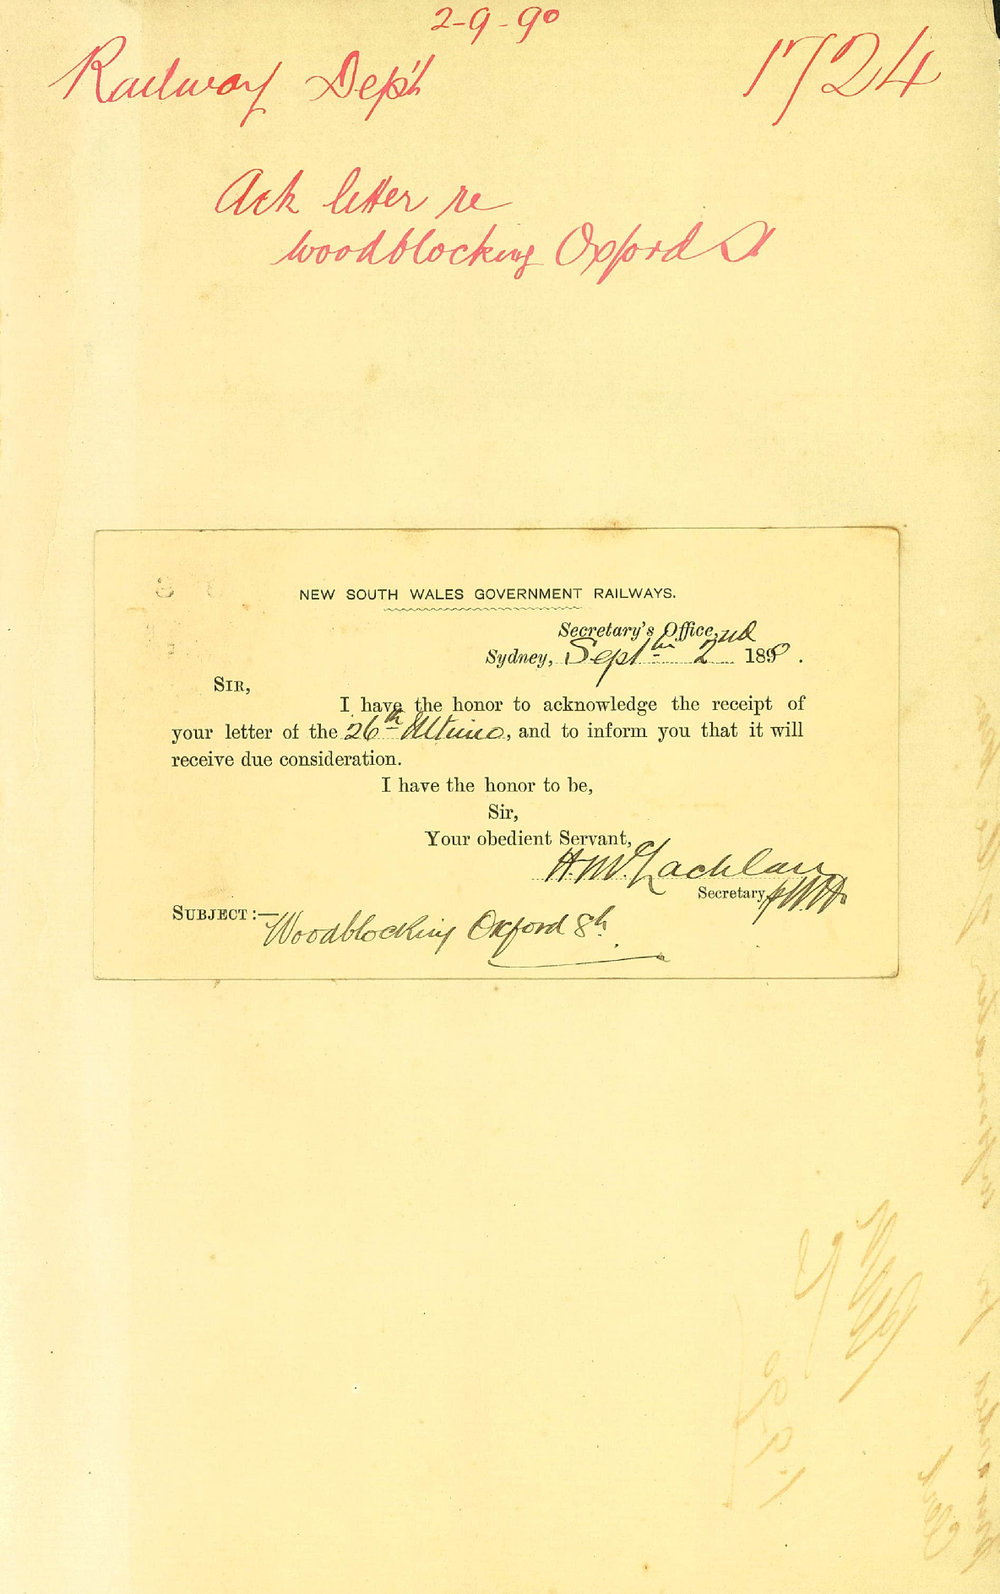 2-9-90
Railway Dep't
1724
Ack letter re
woodblocking Oxford St
NEW SOUTH WALES GOVERNMENT RAILWAYS.
Secretary's Office,
Sydney, Septbr 2nd 1890.
SIR,
I have the honor to acknowledge the receipt of
your letter of the 26th Ultimo, and to inform you that it will
receive due consideration.
I have the honor to be,
Sir,
Your obedient Servant,
H. McLachlan
Secretary
SUBJECT:— Woodblocking Oxford St.